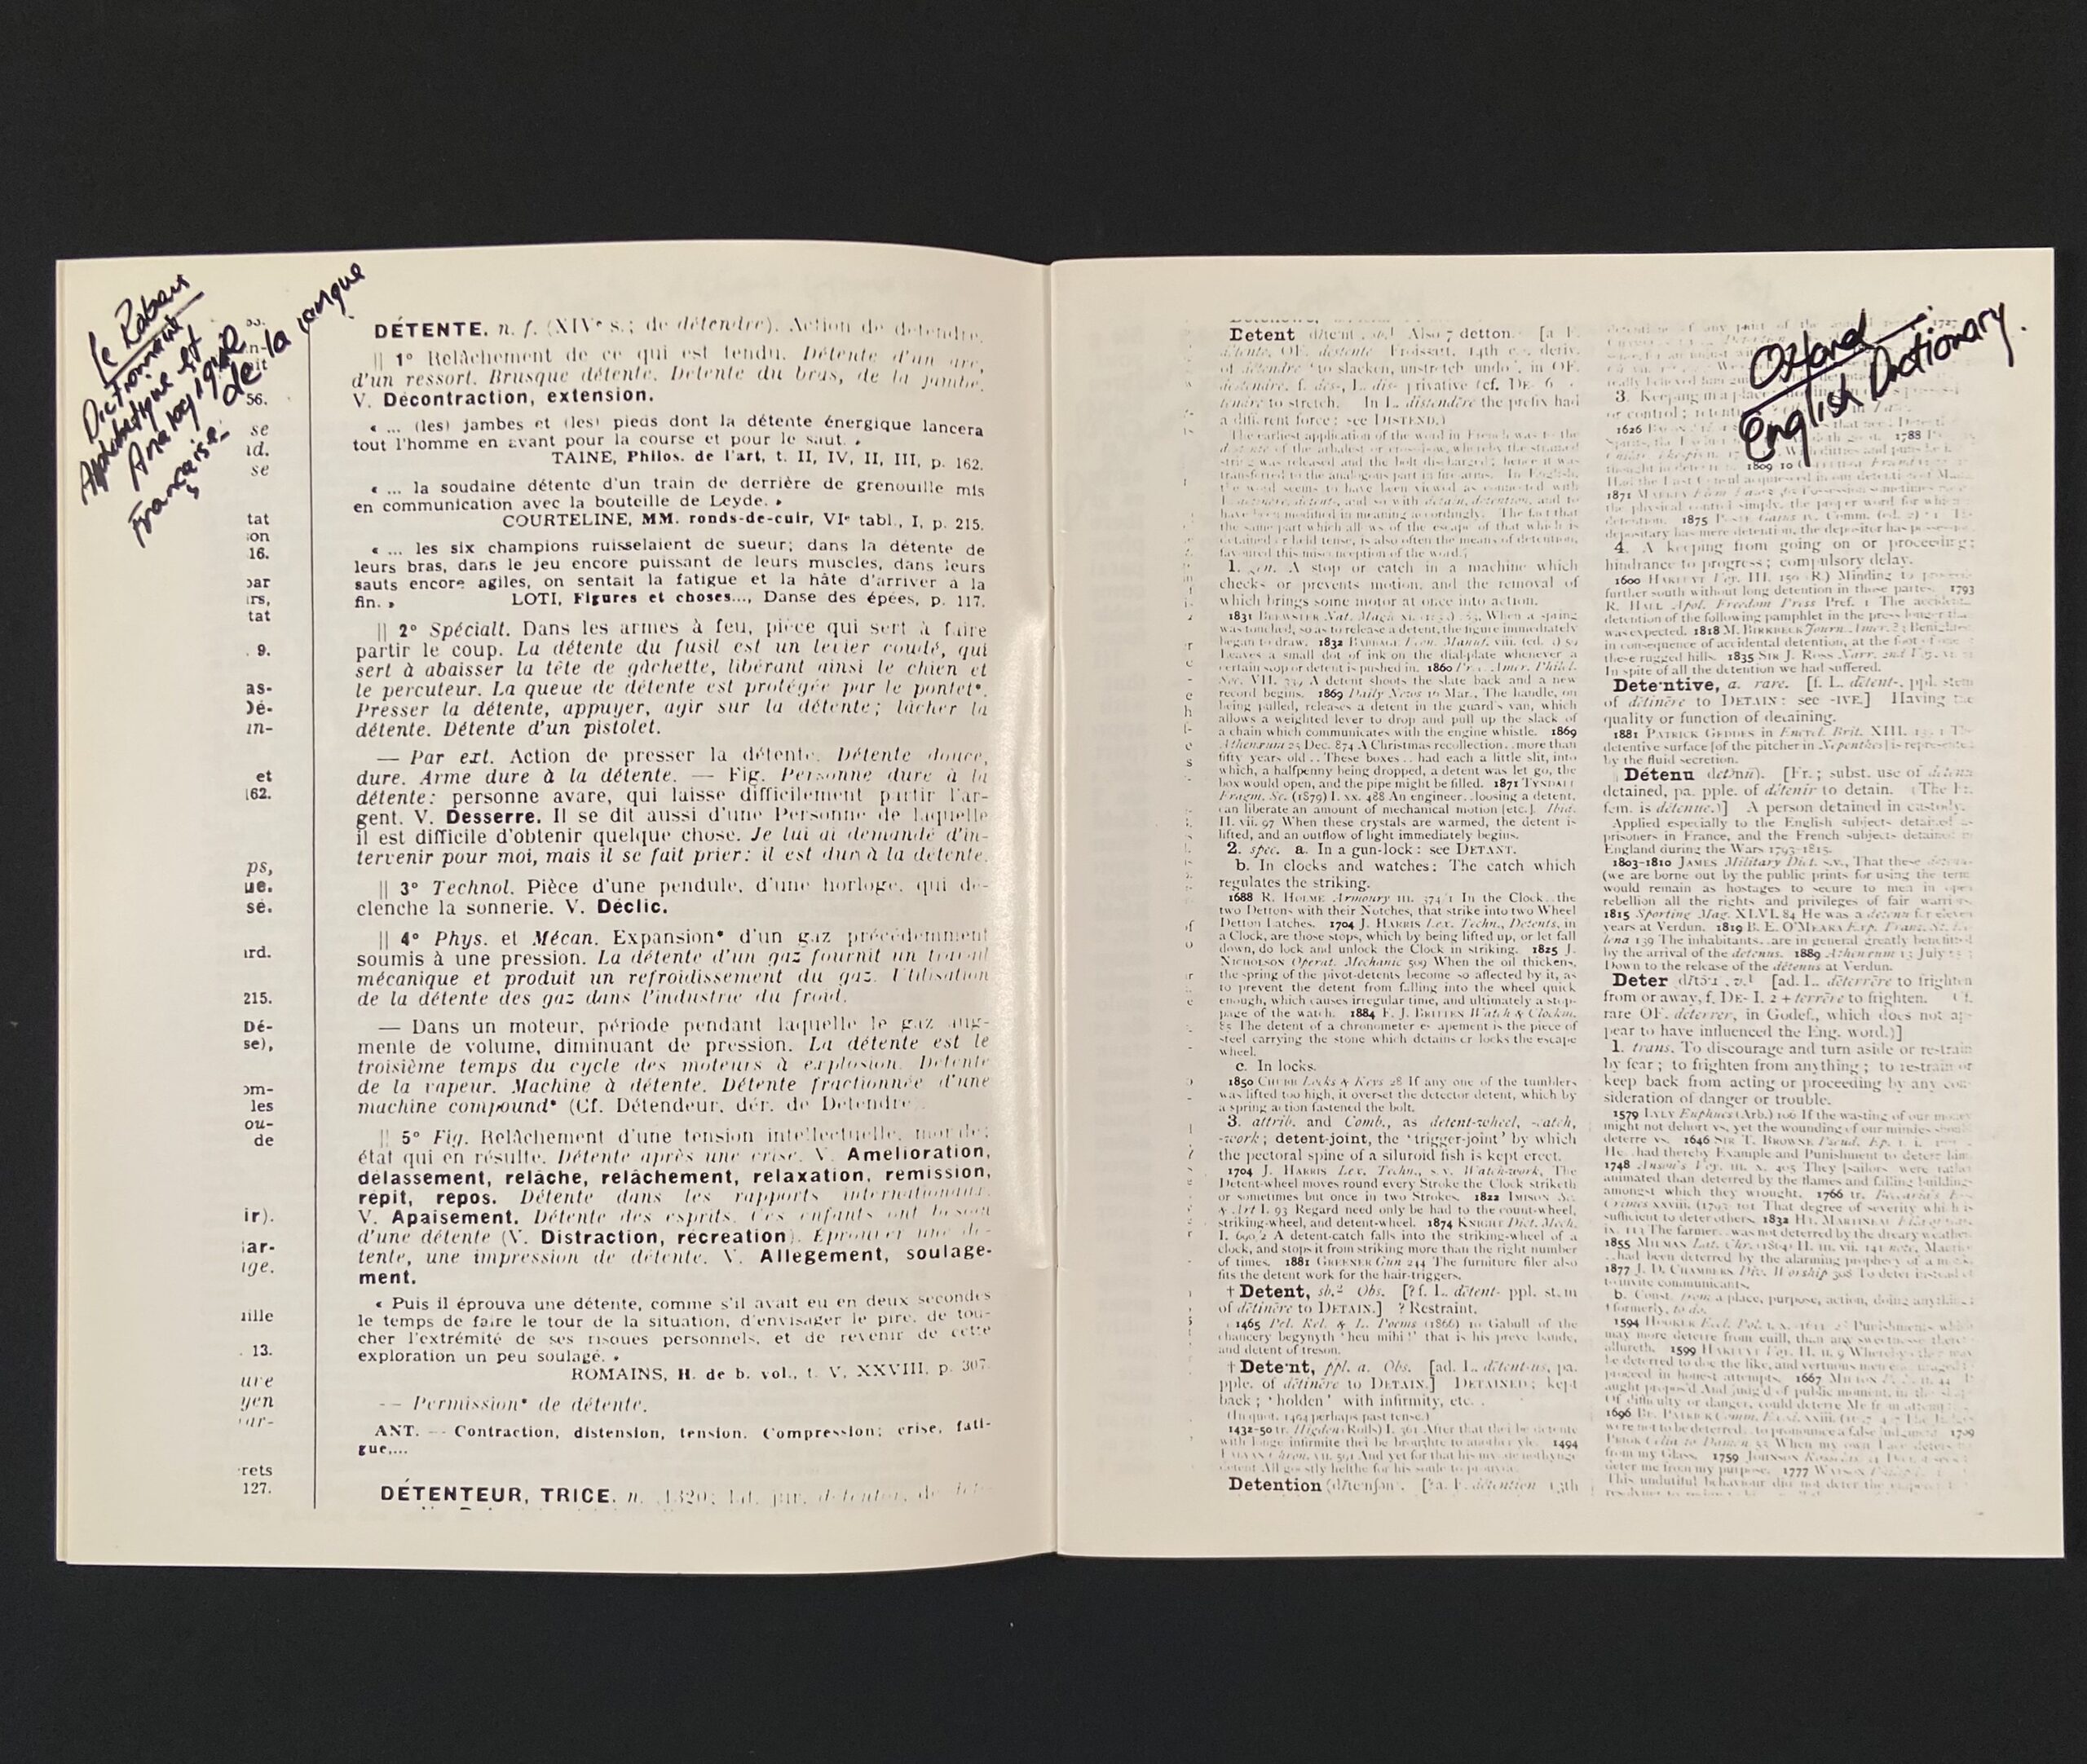 Le Robert
Dictionnaire
Alphabétique et
Analogique
de la langue
Française.
56.
se
id.
se
tat
16.
tat
9.
as-
Dé-
in-
et
162.
ps,
ue.
se.
ard.
215.
Dé-
se),
om-
les
ou-
de
ir).
ar-
ige.
uille
13.
ure
yen
rets
127.
DÉTENTE. n. f. (XIVe s.; de détendre). Action de détendre.
|| 1° Relâchement de ce qui est tendu. Détente d'un arc,
d'un ressort. Brusque détente. Détente du bras, de la jambe.
V. Décontraction, extension.
« ... (les) jambes et (les) pieds dont la détente énergique lancera
tout l'homme en avant pour la course et pour le saut. »
TAINE, Philos. de l'art, t. II, IV, II, III, p. 162.
« ... la soudaine détente d'un train de derrière de grenouille mis
en communication avec la bouteille de Leyde. »
COURTELINE, MM. ronds-de-cuir, VIe tabl., I, p. 215.
« ... les six champions ruisselaient de sueur; dans la détente de
leurs bras, dans le jeu encore puissant de leurs muscles, dans leurs
sauts encore agiles, on sentait la fatigue et la hâte d'arriver à la
fin. » LOTI, Figures et choses..., Danse des épées, p. 117.
|| 2° Spécialt. Dans les armes à feu, pièce qui sert à faire
partir le coup. La détente du fusil est un levier coudé, qui
sert à abaisser la tête de gâchette, libérant ainsi le chien et
le percuteur. La queue de détente est protégée par le pontet*.
Presser la détente, appuyer, agir sur la détente; lâcher la
détente. Détente d'un pistolet.
— Par ext. Action de presser la détente. Détente douce,
dure. Arme dure à la détente. — Fig. Personne dure à la
détente: personne avare, qui laisse difficilement partir l'ar-
gent. V. Desserre. Il se dit aussi d'une Personne de laquelle
il est difficile d'obtenir quelque chose. Je lui ai demandé d'in-
tervenir pour moi, mais il se fait prier: il est dur à la détente.
|| 3° Technol. Pièce d'une pendule, d'une horloge, qui dé-
clenche la sonnerie. V. Déclic.
|| 4° Phys. et Mécan. Expansion* d'un gaz précédemment
soumis à une pression. La détente d'un gaz fournit un travail
mécanique et produit un refroidissement du gaz. Utilisation
de la détente des gaz dans l'industrie du froid.
— Dans un moteur, période pendant laquelle le gaz aug-
mente de volume, diminuant de pression. La détente est le
troisième temps du cycle des moteurs à explosion. Détente
de la vapeur. Machine à détente. Détente fractionnée d'une
machine compound* (Cf. Détendeur, dér. de Détendre
|| 5° Fig. Relâchement d'une tension intellectuelle, morale;
état qui en résulte. Détente après une crise. V. Amelioration,
délassement, relâche, relâchement, relaxation, rémission,
répit, repos. Détente dans les rapports internationaux.
V. Apaisement. Détente des esprits. Ces enfants ont besoin
d'une détente (V. Distraction, récréation). Éprouver une dé-
tente, une impression de détente. V. Allégement, soulage-
ment.
« Puis il éprouva une détente, comme s'il avait eu en deux secondes
le temps de faire le tour de la situation, d'envisager le pire, de tou-
cher l'extrémité de ses risques personnels, et de revenir de cette
exploration un peu soulagé. »
ROMAINS, H. de b. vol., t. V, XXVIII, p. 307.
-- Permission* de détente.
ANT. — Contraction, distension, tension. Compression; crise, fati-
gue,...
DÉTENTEUR, TRICE. n. 1320; lat. jur. detentor, de
Oxford
English Dictionary.
Detent Also 7 detton. [a F.
détente, OF. destente Froissart, 14th c., deriv.
of détendre to slacken, unstretch undo, in OF.
destendre, f. des-, L. dis- privative (cf. DE- 6
tendre to stretch. In L. distendĕre the prefix had
a different force; see DISTEND.)
The earliest application of the word in French was to the
détente of the arbalest or cross-bow, whereby the strained
string was released and the bolt discharged; hence it was
transferred to the analogous part in fire-arms. In English,
the word seems to have been viewed as connected with
L. detinere, detent-, and so with detain, detention, and to
have been modified in meaning accordingly. The fact that
the same part which allows of the escape of that which is
detained or held tense, is also often the means of detention,
favoured this misconception of the word.]
1. gen. A stop or catch in a machine which
checks or prevents motion, and the removal of
which brings some motor at once into action.
1831 BREWSTER Nat. Magic When a spring
was touched, so as to release a detent, the figure immediately
began to draw. 1832 BABBAGE Econ. Manuf. viii. (ed. 3)
Leaves a small dot of ink on the dial-plate whenever a
certain stop or detent is pushed in. 1860 Proc. Amer. Philol.
Soc. VII. A detent shoots the slate back and a new
record begins. 1869 Daily News 16 Mar., The handle, on
being pulled, releases a detent in the guard's van, which
allows a weighted lever to drop and pull up the slack of
a chain which communicates with the engine whistle. 1869
Athenæum 25 Dec. 874 A Christmas recollection..more than
fifty years old.. These boxes.. had each a little slit, into
which, a halfpenny being dropped, a detent was let go, the
box would open, and the pipe might be filled. 1871 TYNDALL
Fragm. Sc. (1879) I. xx. 488 An engineer..loosing a detent,
can liberate an amount of mechanical motion [etc.]. Ibid.
II. vii. 97 When these crystals are warmed, the detent is
lifted, and an outflow of light immediately begins.
2. spec. a. In a gun-lock: see DETANT.
b. In clocks and watches: The catch which
regulates the striking.
1688 R. HOLME Armoury III. 374/1 In the Clock..the
two Dettons with their Notches, that strike into two Wheel
Detton Latches. 1704 J. HARRIS Lex. Techn., Detents, in
a Clock, are those stops, which by being lifted up, or let fall
down, do lock and unlock the Clock in striking. 1825 J.
NICHOLSON Operat. Mechanic 509 When the oil thickens,
the spring of the pivot-detents become so affected by it, as
to prevent the detent from falling into the wheel quick
enough, which causes irregular time, and ultimately a stop-
page of the watch. 1884 F. J. BRITTEN Watch & Clockm.
85 The detent of a chronometer escapement is the piece of
steel carrying the stone which detains or locks the escape
wheel.
c. In locks.
1850 CHUBB Locks & Keys 28 If any one of the tumblers
was lifted too high, it overset the detector detent, which by
a spring action fastened the bolt.
3. attrib. and Comb., as detent-wheel, -catch,
-work; detent-joint, the 'trigger-joint' by which
the pectoral spine of a siluroid fish is kept erect.
1704 J. HARRIS Lex. Techn., s.v. Watch-work, The
Detent-wheel moves round every Stroke the Clock striketh
or sometimes but once in two Strokes. 1822 IMISON Sc.
& Art I. 93 Regard need only be had to the count-wheel,
striking-wheel, and detent-wheel. 1874 KNIGHT Dict. Mech.
I. 690/2 A detent-catch falls into the striking-wheel of a
clock, and stops it from striking more than the right number
of times. 1881 GREENER Gun 244 The furniture filer also
fits the detent work for the hair-triggers.
† Detent, sb.2 Obs. [? f. L. dētent- ppl. stem
of dētinēre to DETAIN.] ? Restraint.
1465 Pol. Rel. & L. Poems (1866) Gabull of the
chancery begynyth 'heu mihi!' that is his preve bande,
and detent of treson.
† Detent, ppl. a. Obs. [ad. L. dētent-us, pa.
pple. of dētinēre to DETAIN.] DETAINED; kept
back; 'holden' with infirmity, etc.
(In quot. 1494 perhaps past tense.)
1432-50 tr. Higden (Rolls) I. 361 After that thei be detente
with longe infirmite thei be broughte to another yle. 1494
FABYAN Chron. And yet for that his
detent All goostly helthe for his soule to
Detention [a. F. détention 13th
3. Keeping in a place
or control; retention
1626
1788
1809-10
1871
the physical control simply, the proper word for which
detention. 1875 POSTE Gaius IV. Comm. (ed. 2)
depositary has mere detention, the depositor has
4. A keeping from going on or proceeding;
hindrance to progress; compulsory delay.
1600 HAKLUYT Voy. III. (R.) Minding to
further south without long detention in those partes. 1793
R. HALL Apol. Freedom Press Pref. 1 The accidental
detention of the following pamphlet in the press longer than
was expected. 1818 M. BIRKBECK Journ. Amer.
in consequence of accidental detention, at the foot of one
these rugged hills. 1835 SIR J. ROSS Narr. 2nd Voy.
In spite of all the detention we had suffered.
Detentive, a. rare. [f. L. dētent-, ppl. stem
of dētinēre to DETAIN: see -IVE.] Having the
quality or function of detaining.
1881 PATRICK GEDDES in Encycl. Brit. XIII. The
detentive surface [of the pitcher in Nepenthes] is represented
by the fluid secretion.
Détenu [Fr.; subst. use of détenu
detained, pa. pple. of détenir to detain. (The Fr.
fem. is détenue.)] A person detained in custody.
Applied especially to the English subjects detained as
prisoners in France, and the French subjects detained in
England during the Wars 1793-1815.
1803-1810 JAMES Military Dict. s.v., That these
(we are borne out by the public prints for using the term
would remain as hostages to secure to men in open
rebellion all the rights and privileges of fair warriors.
1815 Sporting Mag. XLVI. 84 He was a détenu for eleven
years at Verdun. 1819 B. E. O'MEARA Exp. Trans. St. He-
lena 139 The inhabitants..are in general greatly benefited
by the arrival of the détenus. 1889 Athenæum 13 July
Down to the release of the détenus at Verdun.
Deter v.1 [ad. L. dēterrēre to frighten
from or away, f. DE- I. 2 + terrēre to frighten. Cf.
rare OF. déterrer, in Godef., which does not ap-
pear to have influenced the Eng. word.)]
1. trans. To discourage and turn aside or restrain
by fear; to frighten from anything; to restrain or
keep back from acting or proceeding by any con-
sideration of danger or trouble.
1579 LYLY Euphues (Arb.) 106 If the wasting of our money
might not dehort vs, yet the wounding of our mindes should
deterre vs. 1646 SIR T. BROWNE Pseud. Ep. I. i.
He..had thereby Example and Punishment to deterr him.
1748 Anson's Voy. III. x. 405 They [sailors] were rather
animated than deterred by the flames and falling buildings
amongst which they wrought. 1766 tr. Beccaria's Ess.
Crimes xxviii. (1793) 101 That degree of severity which is
sufficient to deter others. 1832 HT. MARTINEAU
The farmer.. was not deterred by the dreary weather
1855 MILMAN Lat. Chr. (1864) II. III. vii. 141 note,
..had been deterred by the alarming prophecy of a monk.
1877 J. D. CHAMBERS Div. Worship 308 To deter instead of
to invite communicants.
b. Const. from a place, purpose, action, doing anything;
† formerly, to do.
1594 HOOKER Eccl. Pol. Punishments which
may more deterre from euill, than any sweetnesse thereto
allureth. 1599 HAKLUYT Voy. II. II. 9 Whereby
be deterred to doe the like, and vertuous men encouraged
proceed in honest attempts. 1667 MILTON P. L.
aught propos'd And judg'd of public moment, in the shape
Of difficulty or danger, could deterre Me from attempting.
1696 BP. PATRICK Comm. Exod. xxiii.
were not to be deterred..to pronounce a false Judgment. 1709
PRIOR Celia to Damon When my own Face deters
from my Glass. 1759 JOHNSON Rasselas
deter me from my purpose. 1777 WATSON Philip II
This undutiful behaviour did not deter the emperor